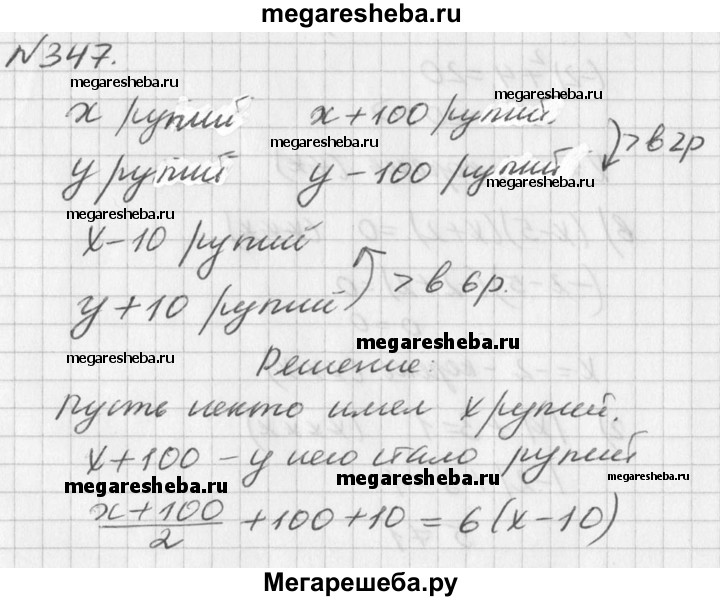 megaresheba.com
№347.
megaresheba.com
x рупий x+100 рупий
megaresheba.com
y рупий y-100 рупий > в 2р
megaresheba.com
megaresheba.com
x-10 рупий
y+10 рупий > в 6р.
megaresheba.com
megaresheba.com
Решение:
Пусть некто имел x рупий.
x+100 - у него стало рупий
megaresheba.com megaresheba.com megaresheba.com
(x+100)/2 + 100 + 10 = 6(x-10)
Мегарешеба.ру